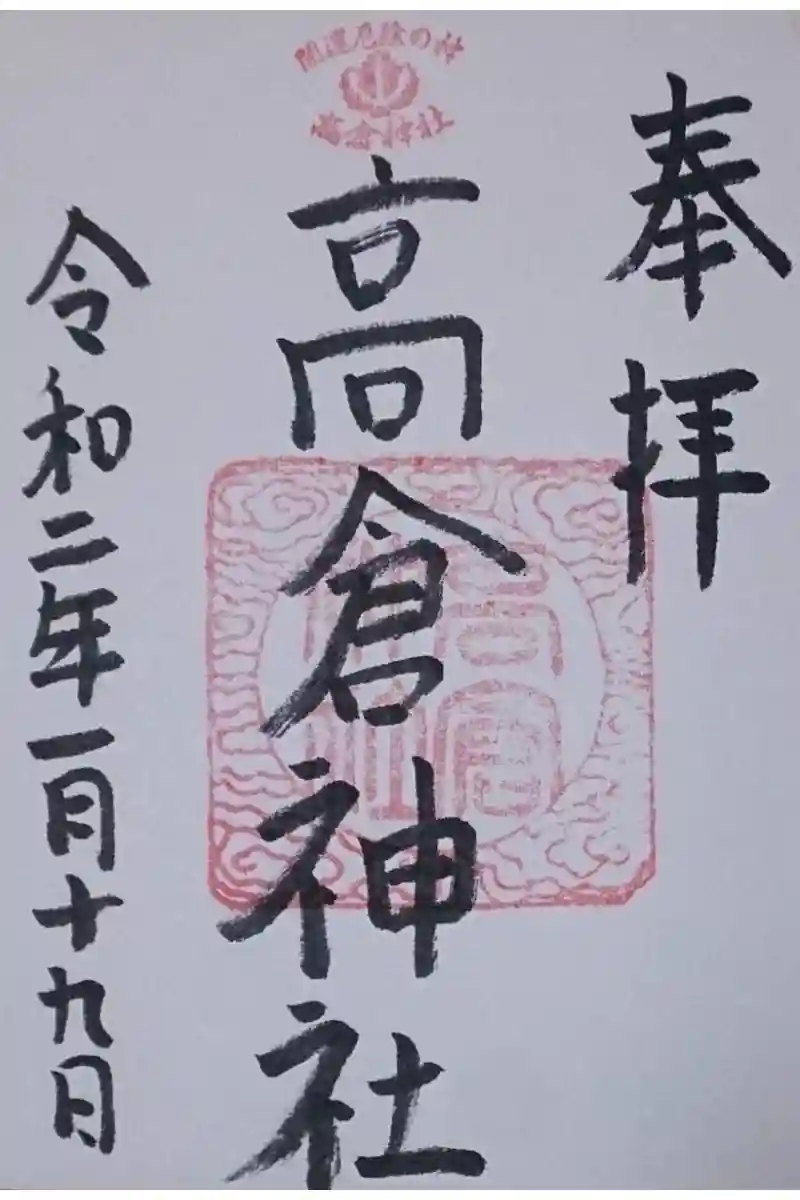 奉拝
開運厄除の神
高倉神社
高倉神社
令和二年一月十九日